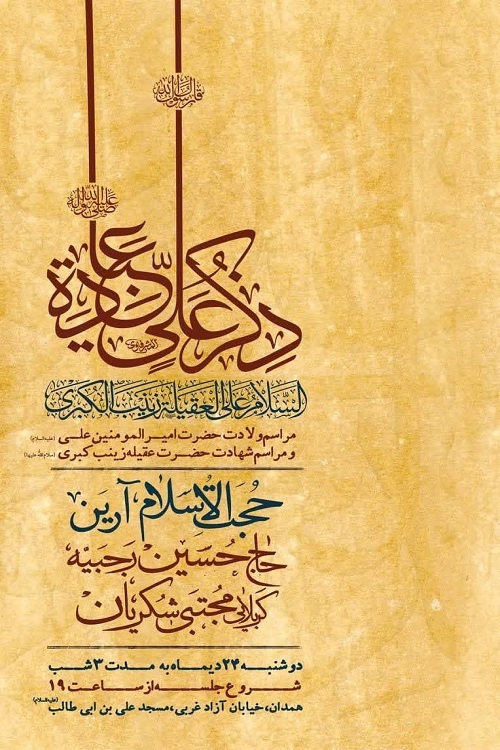 قال رسول الله
صلی الله علیه و آله
ذِکرُ عَلیٍّ عِبادَة
السلام علی العقیلة زینب الکبری
مراسم ولادت حضرت امیرالمومنین علی (علیه السلام)
و مراسم شهادت حضرت عقیله زینب کبری (سلام الله علیها)
حجت الاسلام آرین
حاج حسین رجبیه
کربلایی مجتبی شکریان
دوشنبه ۲۴ دیماه به مدت ۳ شب
شروع جلسه از ساعت ۱۹
همدان، خیابان آزاد غربی، مسجد علی بن ابی طالب (علیه السلام)